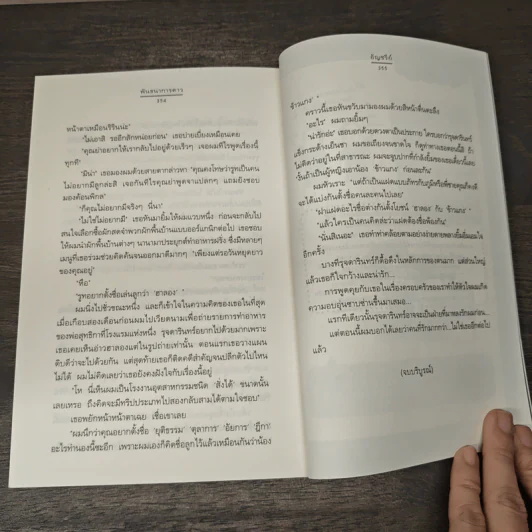 พันธนาการดาว
254
หน้าตาเหมือนรินันน่ะ"
"ไม่เอาสิ รออีกสักหน่อยก่อน" เธอบ่ายเบี่ยงเหมือนเคย
"คุณบ่าอยากให้เรากลับไปอยู่ด้วยเร็วๆ เจอผมทีไรพูดเรื่องนี้
ทุกที"
"มีน่า" เธอมองผมด้วยสายตากล่าวหา "คุณคงโทษว่ารูทเป็นคน
ไม่อยากมีลูกล่ะสิ เจอกันทีไรคุณย่าพูดจาแปลกๆ แถมยังชอบ
มองค้อนพิกล"
"ก็คุณไม่อยากมีจริงๆ นี่นา"
"ไม่ใช่ไม่อยากมี" เธอหันมายิ้มให้ผมแวบหนึ่ง ก่อนจะกลับไป
สนใจเลือกซื้อผักสดจำพวกผักพื้นบ้านแบบออร์แกนิกต่อไป เธอชอบ
ให้ผมนำผักพื้นบ้านต่างๆ นานามาประยุกต์ทำอาหารฝรั่ง ซึ่งมีหลายๆ
เมนูที่เธอร่วมช่วยคิดกันจนออกมาดีมากๆ "เพียงแต่รอวันหยุดยาว
ของคุณอยู่"
"หือ"
"รูทอยากตั้งชื่อเล่นลูกว่า 'ฮาลอง'"
ผมนิ่งไปชั่วขณะหนึ่ง และก็เข้าใจในความคิดของเธอในที่สุด
เมื่อเกือบสองเดือนก่อนผมไปเวียดนามเพื่อถ่ายรายการทำอาหาร
ของพ่อสุทธิกาที่โรงแรมแห่งหนึ่ง รุจดารินทร์อยากไปด้วยมากเพราะ
เธอเคยเห็นอ่าวฮาลองแต่ในรูปถ่ายเท่านั้น ตอนแรกเธอวางแผน
ดิบดีว่าจะไปด้วยกัน แต่สุดท้ายเธอก็ติดคดีสำคัญจนปลีกตัวไปไหน
ไม่ได้ ผมไม่คิดเลยว่าเธอยังคงฝังใจกับเรื่องนี้อยู่
"โห นี่เห็นผมเป็นโรงงานอุตสาหกรรมชนิด 'สั่งได้' ขนาดนั้น
เลยเหรอ ถึงคิดจะมีทริปประเภทไปสองกลับสามได้ตามใจชอบ"
เธอพยักหน้าหน้าตาเฉย เชื่อเขาเลย
"ผมนึกว่าคุณอยากตั้งชื่อ 'ยุติธรรม' 'ตุลาการ' 'อัยการ' 'ฎีกา'
อะไรทำนองนี้ซะอีก เพราะผมเองก็คิดชื่อลูกไว้แล้วเหมือนกันว่าน้อง
กัญฉรีย์
255
'ข้าวแกง'"
คราวนี้เธอหันขวับมามองผมด้วยสีหน้าตื่นตะลึง
"อะไร" ผมถามยิ้มๆ
"น่ารักอ่ะ" เธอบอกด้วยดวงตาเป็นประกาย
ไม่คิดว่าอยู่ในที่สาธารณะ ผมจะจูบปากที่กำลังยิ้มของเธอเดี๋ยวนี้เลย
ผมหัวเราะ
จะได้แบ่งกันตั้งชื่อคนละคนไปเลย"
"แล้วใครเป็นคนคิดล่ะว่าแฝดต้องชื่อพ้องกัน"
"นั่นสิเนอะ" เธอทำท่าคล้อยตามอย่างง่ายดายพลางยิ้มแย้มแจ่มใส
อีกครั้ง
บางทีรุจดารินทร์ก็ดื้อดึงในหลักการของตนมาก แต่ส่วนใหญ่
แล้วเธอก็ใจกว้างและน่ารัก...
การพูดคุยกับเธอในเรื่องครอบครัวของเราทำให้หัวใจผมเกิด
ความอบอุ่นซาบซ่านขึ้นมาเสมอ...
แรกทีเดียวนั้นรุจดารินทร์อาจจะเป็นเธอที่มาพลัดรักผมก่อน...
แต่ตอนนี้ผมบอกได้เลยว่าคนที่รักมากกว่า...ไม่ใช่เธออีกต่อไป
แล้ว
(จบบริบูรณ์)